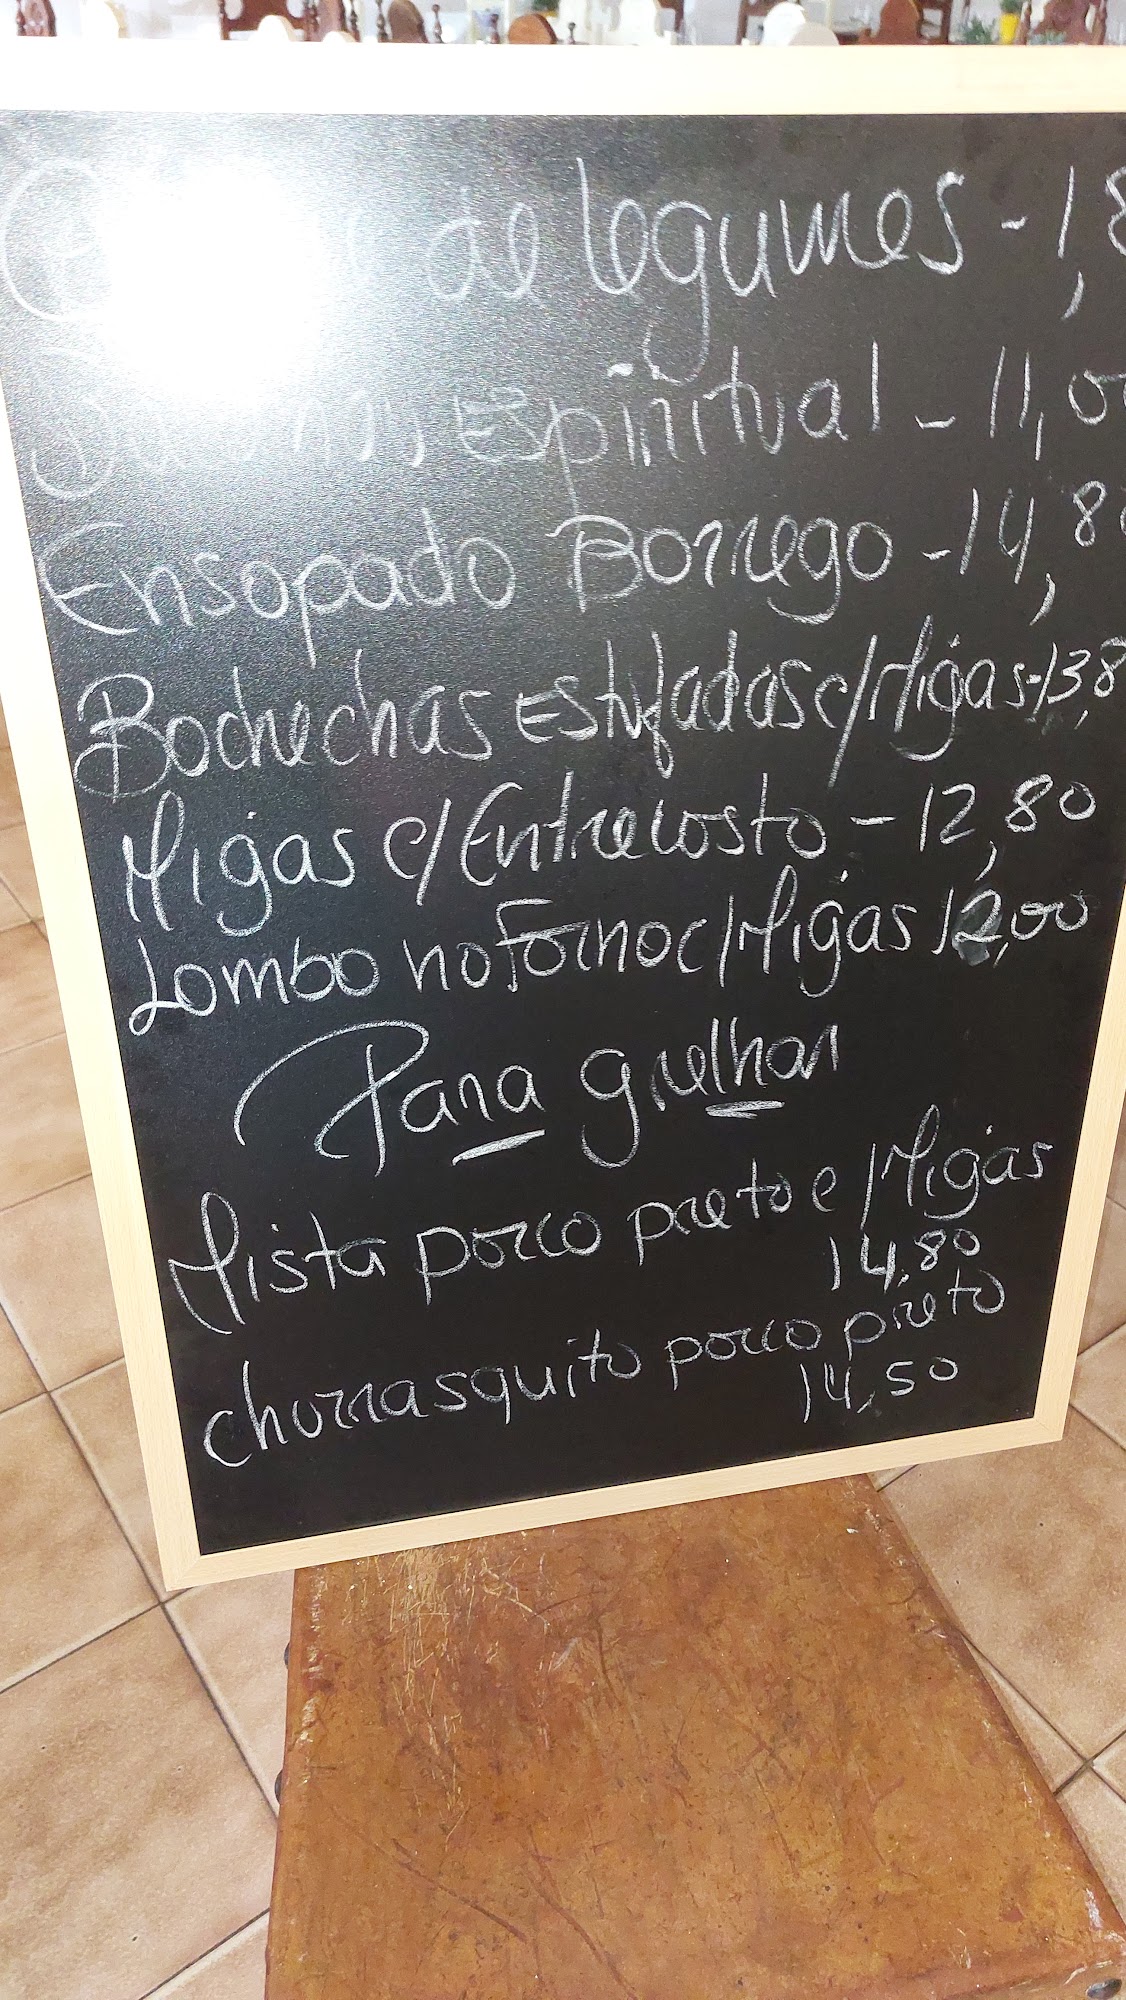 de legumes - 1,8
Espiritual - 11,00
Ensopado Borrego - 14,80
Bochechas Estufadas c/Migas - 13,8
Migas c/Entrecosto - 12,80
Lombo no Forno c/Migas 12,00
Para grelhar
Mista porco preto c/Migas
14,80
churrasquito porco preto
14,50